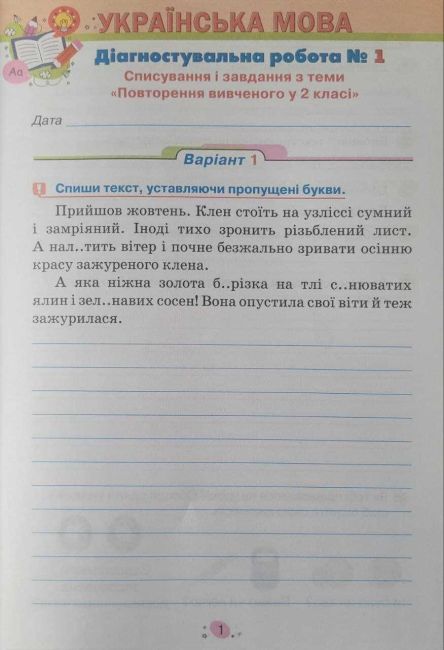 УКРАЇНСЬКА МОВА
Діагностувальна робота № 1
Списування і завдання з теми
«Повторення вивченого у 2 класі»
Аа
Дата
Варіант 1
Спиши текст, уставляючи пропущені букви.
Прийшов жовтень. Клен стоїть на узліссі сумний
і замріяний. Іноді тихо зронить різьблений лист.
А нал..тить вітер і почне безжально зривати осінню
красу зажуреного клена.
А яка ніжна золота б..різка на тлі с..нюватих
ялин і зел..навих сосен! Вона опустила свої віти й теж
зажурилася.
1